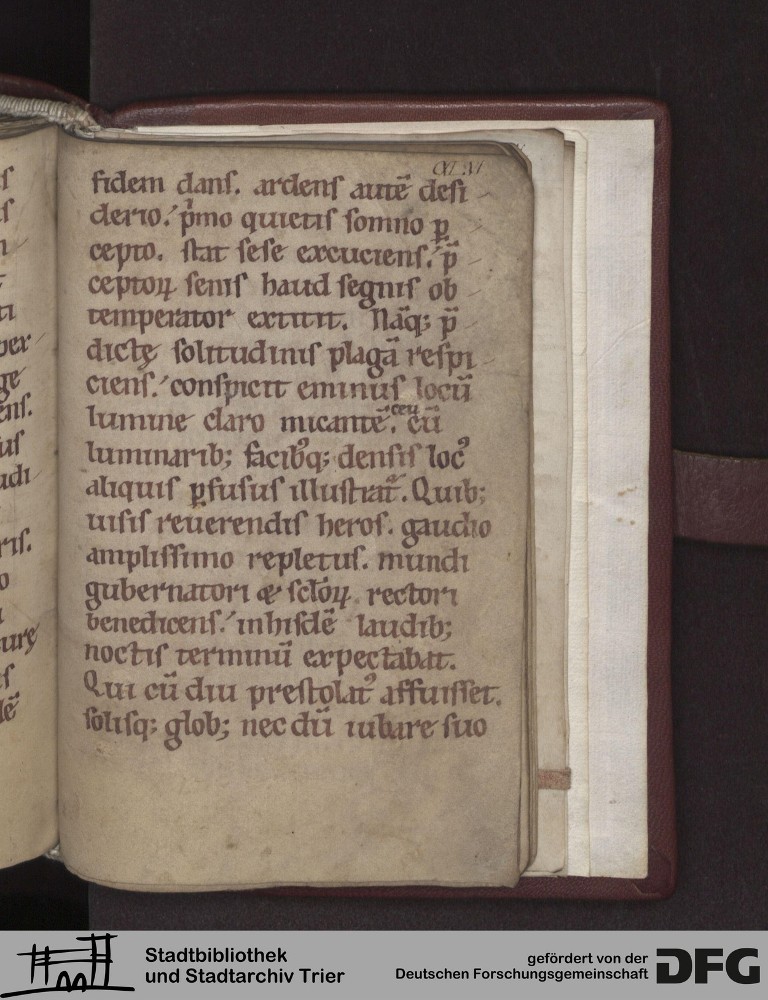 fidem danſ. ardenſ autē deſi
derio. p̾mo quietiſ ſomno ꝑ
cepto. ſtat ſeſe excutienſ. p̄
ceptoꝝ ſeniſ haud ſegniſ ob
temperator extitit. Nāq; p̄
dictę ſolitudiniſ plagā reſpi
cienſ. conſpicit eminuſ locū
lumine claro micantē. ceu cū
luminarib; facib;q; denſiſ locꝰ
aliquiſ ꝑfuſuſ illuſtrat᷒. Quib;
uiſiſ reuerendiſ heroſ. gaudio
ampliſſimo repletuſ. mundi
gubernatori & ſc̄toꝝ rectori
benedicenſ. inhiſdē laudib;
noctiſ terminū expectabat.
Qui cū diu preſtolat᷒ affuiſſet.
ſoliſq; glob; nec dū iubare ſuo
Stadtbibliothek
und Stadtarchiv Trier
gefördert von der
Deutschen Forschungsgemeinschaft
DFG